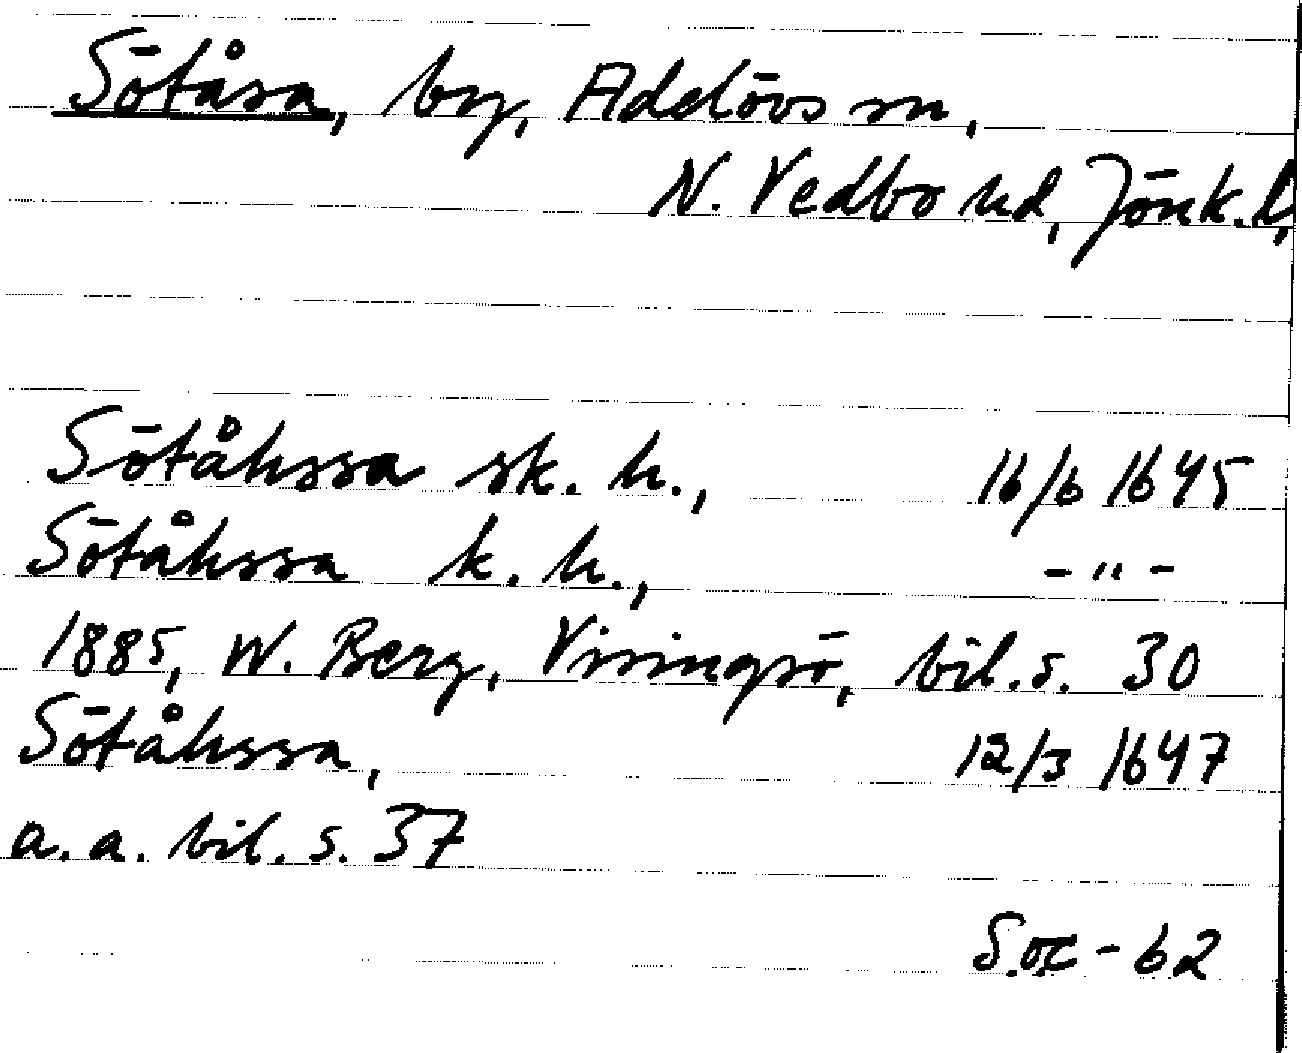 Sötåsa, by, Adelövs sn,
N. Vedbo hd, Jönk. l,
Sötåhssa sk. h., 16/6 1645
Sötåhssa k. h., - " -
1885, W. Berg, Visingsö, bil. s. 30
Sötåhssa, 12/3 1647
a. a. bil. s. 37
S.œ - 62